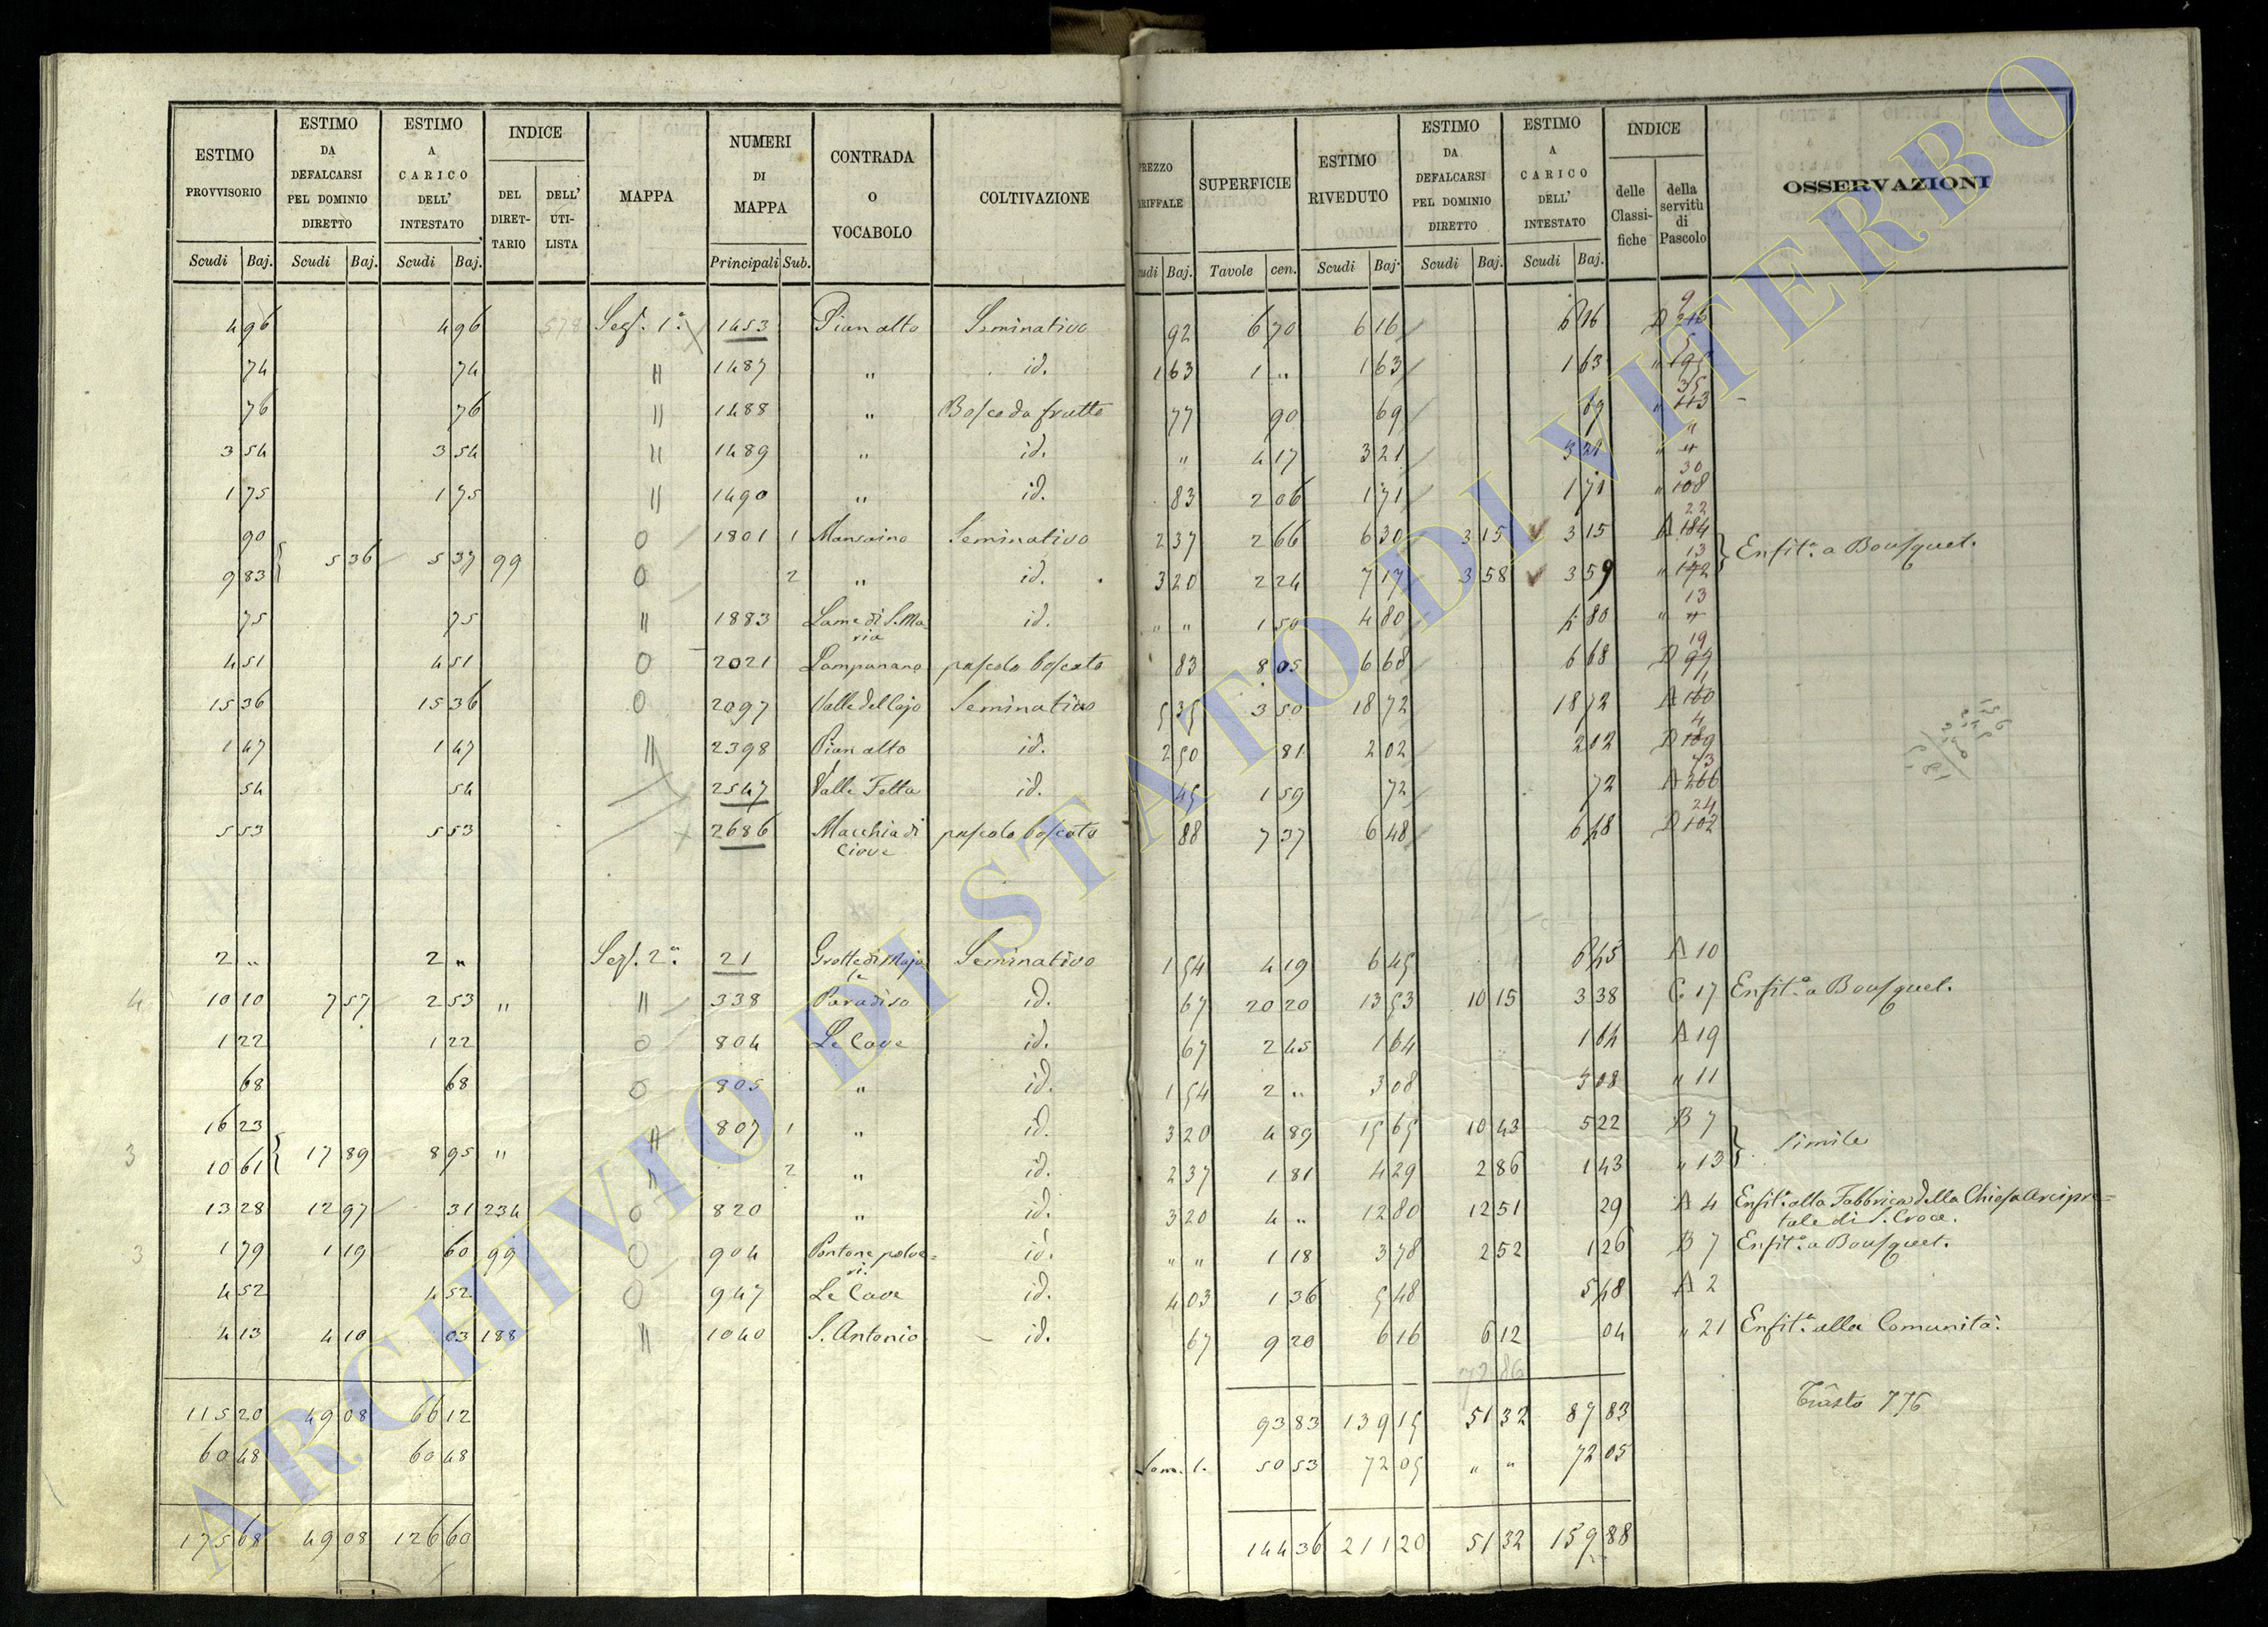 ESTIMO PROVVISORIO | ESTIMO DA DEFALCARSI PEL DOMINIO DIRETTO | ESTIMO A CARICO DELL' INTESTATO | INDICE | MAPPA | NUMERI DI MAPPA | CONTRADA O VOCABOLO | COLTIVAZIONE | PREZZO TARIFFALE | SUPERFICIE | ESTIMO RIVEDUTO | ESTIMO DA DEFALCARSI PEL DOMINIO DIRETTO | ESTIMO A CARICO DELL' INTESTATO | INDICE | OSSERVAZIONI
DEL DIRET-TARIO | DELL' UTI-LISTA | delle Classi-fiche | della servitù di Pascolo
Scudi | Baj. | Scudi | Baj. | Scudi | Baj. | Principali | Sub. | Scudi | Baj. | Tavole | cen. | Scudi | Baj. | Scudi | Baj. | Scudi | Baj.
4 96 | 4 96 | 578 | Sez. 1.a | 1453 | Pian alto | Seminativo | 92 | 6 70 | 6 16 | 6 16 | D 216 9
74 | 74 | " | 1487 | " | id. | 1 63 | 1 " | 1 63 | 1 63 | "
76 | 76 | " | 1488 | " | Bosco da frutto | 77 | 90 | 69 | 69 | " 113 35
3 54 | 3 54 | " | 1489 | " | id. | " | 4 17 | 3 21 | 3 21 | " "
1 75 | 1 75 | " | 1490 | " | id. | 83 | 2 06 | 1 71 | 1 71 | " 108 30
90 | 0 | 1801 | 1 | Mansaino | Seminativo | 2 37 | 2 66 | 6 30 | 3 15 | 3 15 | A 184 22
9 83 | 5 36 | 5 37 | 99 | 0 | 2 | " | id. | 3 20 | 2 24 | 7 17 | 3 58 | 3 59 | " 172 13 | Enfit.a a Bousquet.
75 | 75 | " | 1883 | Lame di S. Maria | id. | " " | 1 50 | 4 80 | 4 80 | " " 13
4 51 | 4 51 | 0 | 2021 | Lampanano | pascolo boscato | 83 | 8 05 | 6 68 | 6 68 | D 99 19
15 36 | 15 36 | 0 | 2097 | Valle del Cajo | Seminativo | 5 35 | 3 50 | 18 72 | 18 72 | A 160 1
1 47 | 1 47 | " | 2398 | Pian alto | id. | 2 50 | 81 | 2 02 | 2 02 | D 189 4
54 | 54 | 2547 | Valle Fetta | id. | 45 | 1 59 | 72 | 72 | A 266 73
5 53 | 5 53 | 2686 | Macchia di Ciove | pascolo boscato | 88 | 7 37 | 6 48 | 6 48 | D 102 24
2 " | 2 " | Sez. 2.a | 21 | Grotte di Majole | Seminativo | 1 54 | 4 19 | 6 45 | 6 45 | A 10
4 | 10 10 | 7 57 | 2 53 | " | " | 338 | Paradiso | id. | 67 | 20 20 | 13 53 | 10 15 | 3 38 | C 17 | Enfit.a a Bousquet.
1 22 | 1 22 | 0 | 804 | Le Cave | id. | 67 | 2 45 | 1 64 | 1 64 | A 19
68 | 68 | 0 | 805 | " | id. | 1 54 | 2 " | 3 08 | 3 08 | " 11
16 23 | " | 807 | 1 | " | id. | 3 20 | 4 89 | 15 65 | 10 43 | 5 22 | B 7
3 | 10 61 | 17 89 | 8 95 | " | " | 2 | " | id. | 2 37 | 1 81 | 4 29 | 2 86 | 1 43 | " 13 | Simile
13 28 | 12 97 | 31 | 234 | 0 | 820 | " | id. | 3 20 | 4 " | 12 80 | 12 51 | 29 | A 4 | Enfit.a alla Fabbrica della Chiesa Arcipre=tale di S. Croce.
3 | 1 79 | 1 19 | 60 | 99 | 0 | 904 | Pontone polve=ri. | id. | " " | 1 18 | 3 78 | 2 52 | 1 26 | B 7 | Enfit.a a Bousquet.
4 52 | 4 52 | 0 | 947 | Le Cave | id. | 4 03 | 1 36 | 5 48 | 5 48 | A 2
4 13 | 4 10 | 03 | 188 | " | 1040 | S. Antonio | id. | 67 | 9 20 | 6 16 | 6 12 | 04 | " 21 | Enfit.a alla Comunità.
72 86
115 20 | 49 08 | 66 12 | 93 83 | 139 15 | 51 32 | 87 83 | 776
60 48 | 60 48 | Som. 1. | 50 53 | 72 05 | " " | 72 05
175 68 | 49 08 | 126 60 | 144 36 | 211 20 | 51 32 | 159 88
ARCHIVIO DI STATO DI VITERBO